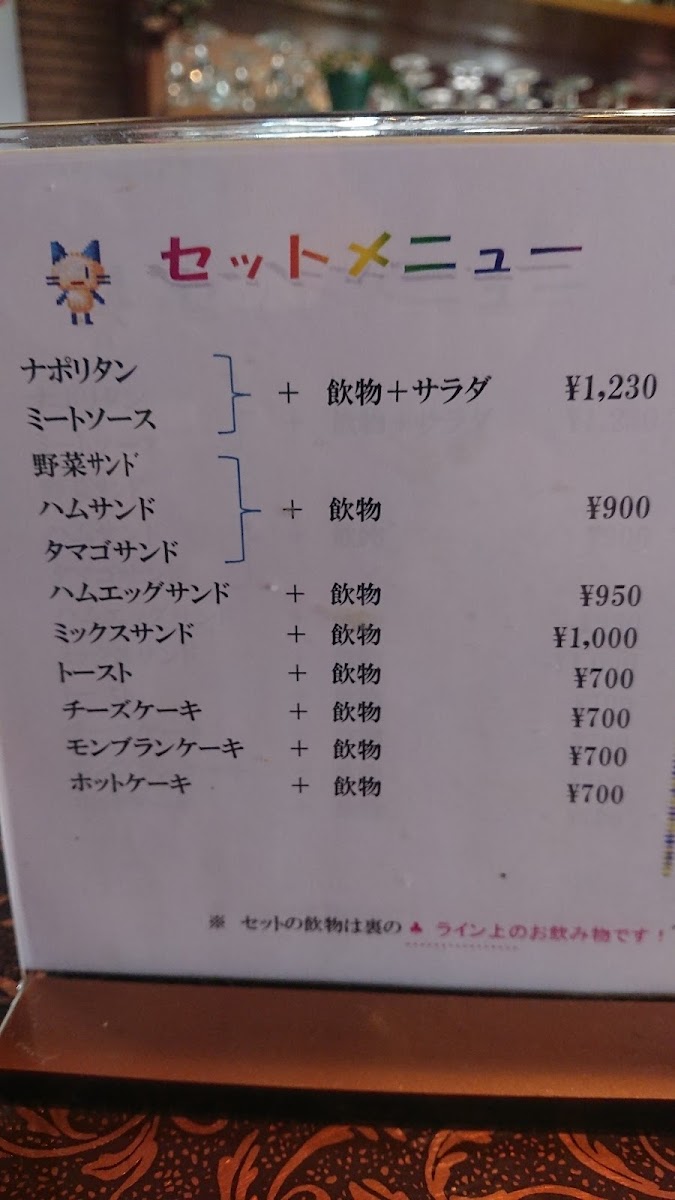 セットメニュー
ナポリタン
ミートソース
+ 飲物+サラダ ¥1,230
野菜サンド
ハムサンド
タマゴサンド
+ 飲物 ¥900
ハムエッグサンド + 飲物 ¥950
ミックスサンド + 飲物 ¥1,000
トースト + 飲物 ¥700
チーズケーキ + 飲物 ¥700
モンブランケーキ + 飲物 ¥700
ホットケーキ + 飲物 ¥700
※ セットの飲物は裏の ♣ ライン上のお飲み物です!